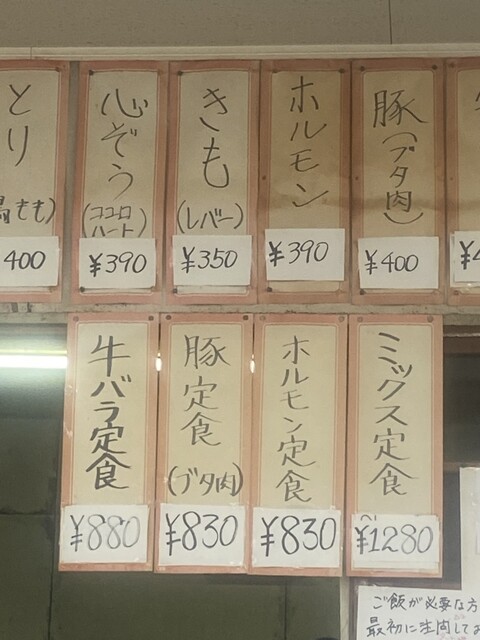 とり
もも)
400
心ぞう
(ココロ
ハート)
¥390
きも
(レバー)
¥350
ホルモン
¥390
豚(ブタ肉)
¥400
牛バラ定食
¥880
豚定食
(ブタ肉)
¥830
ホルモン定食
¥830
ミックス定食
¥1280
ご飯が必要な方
最初に注